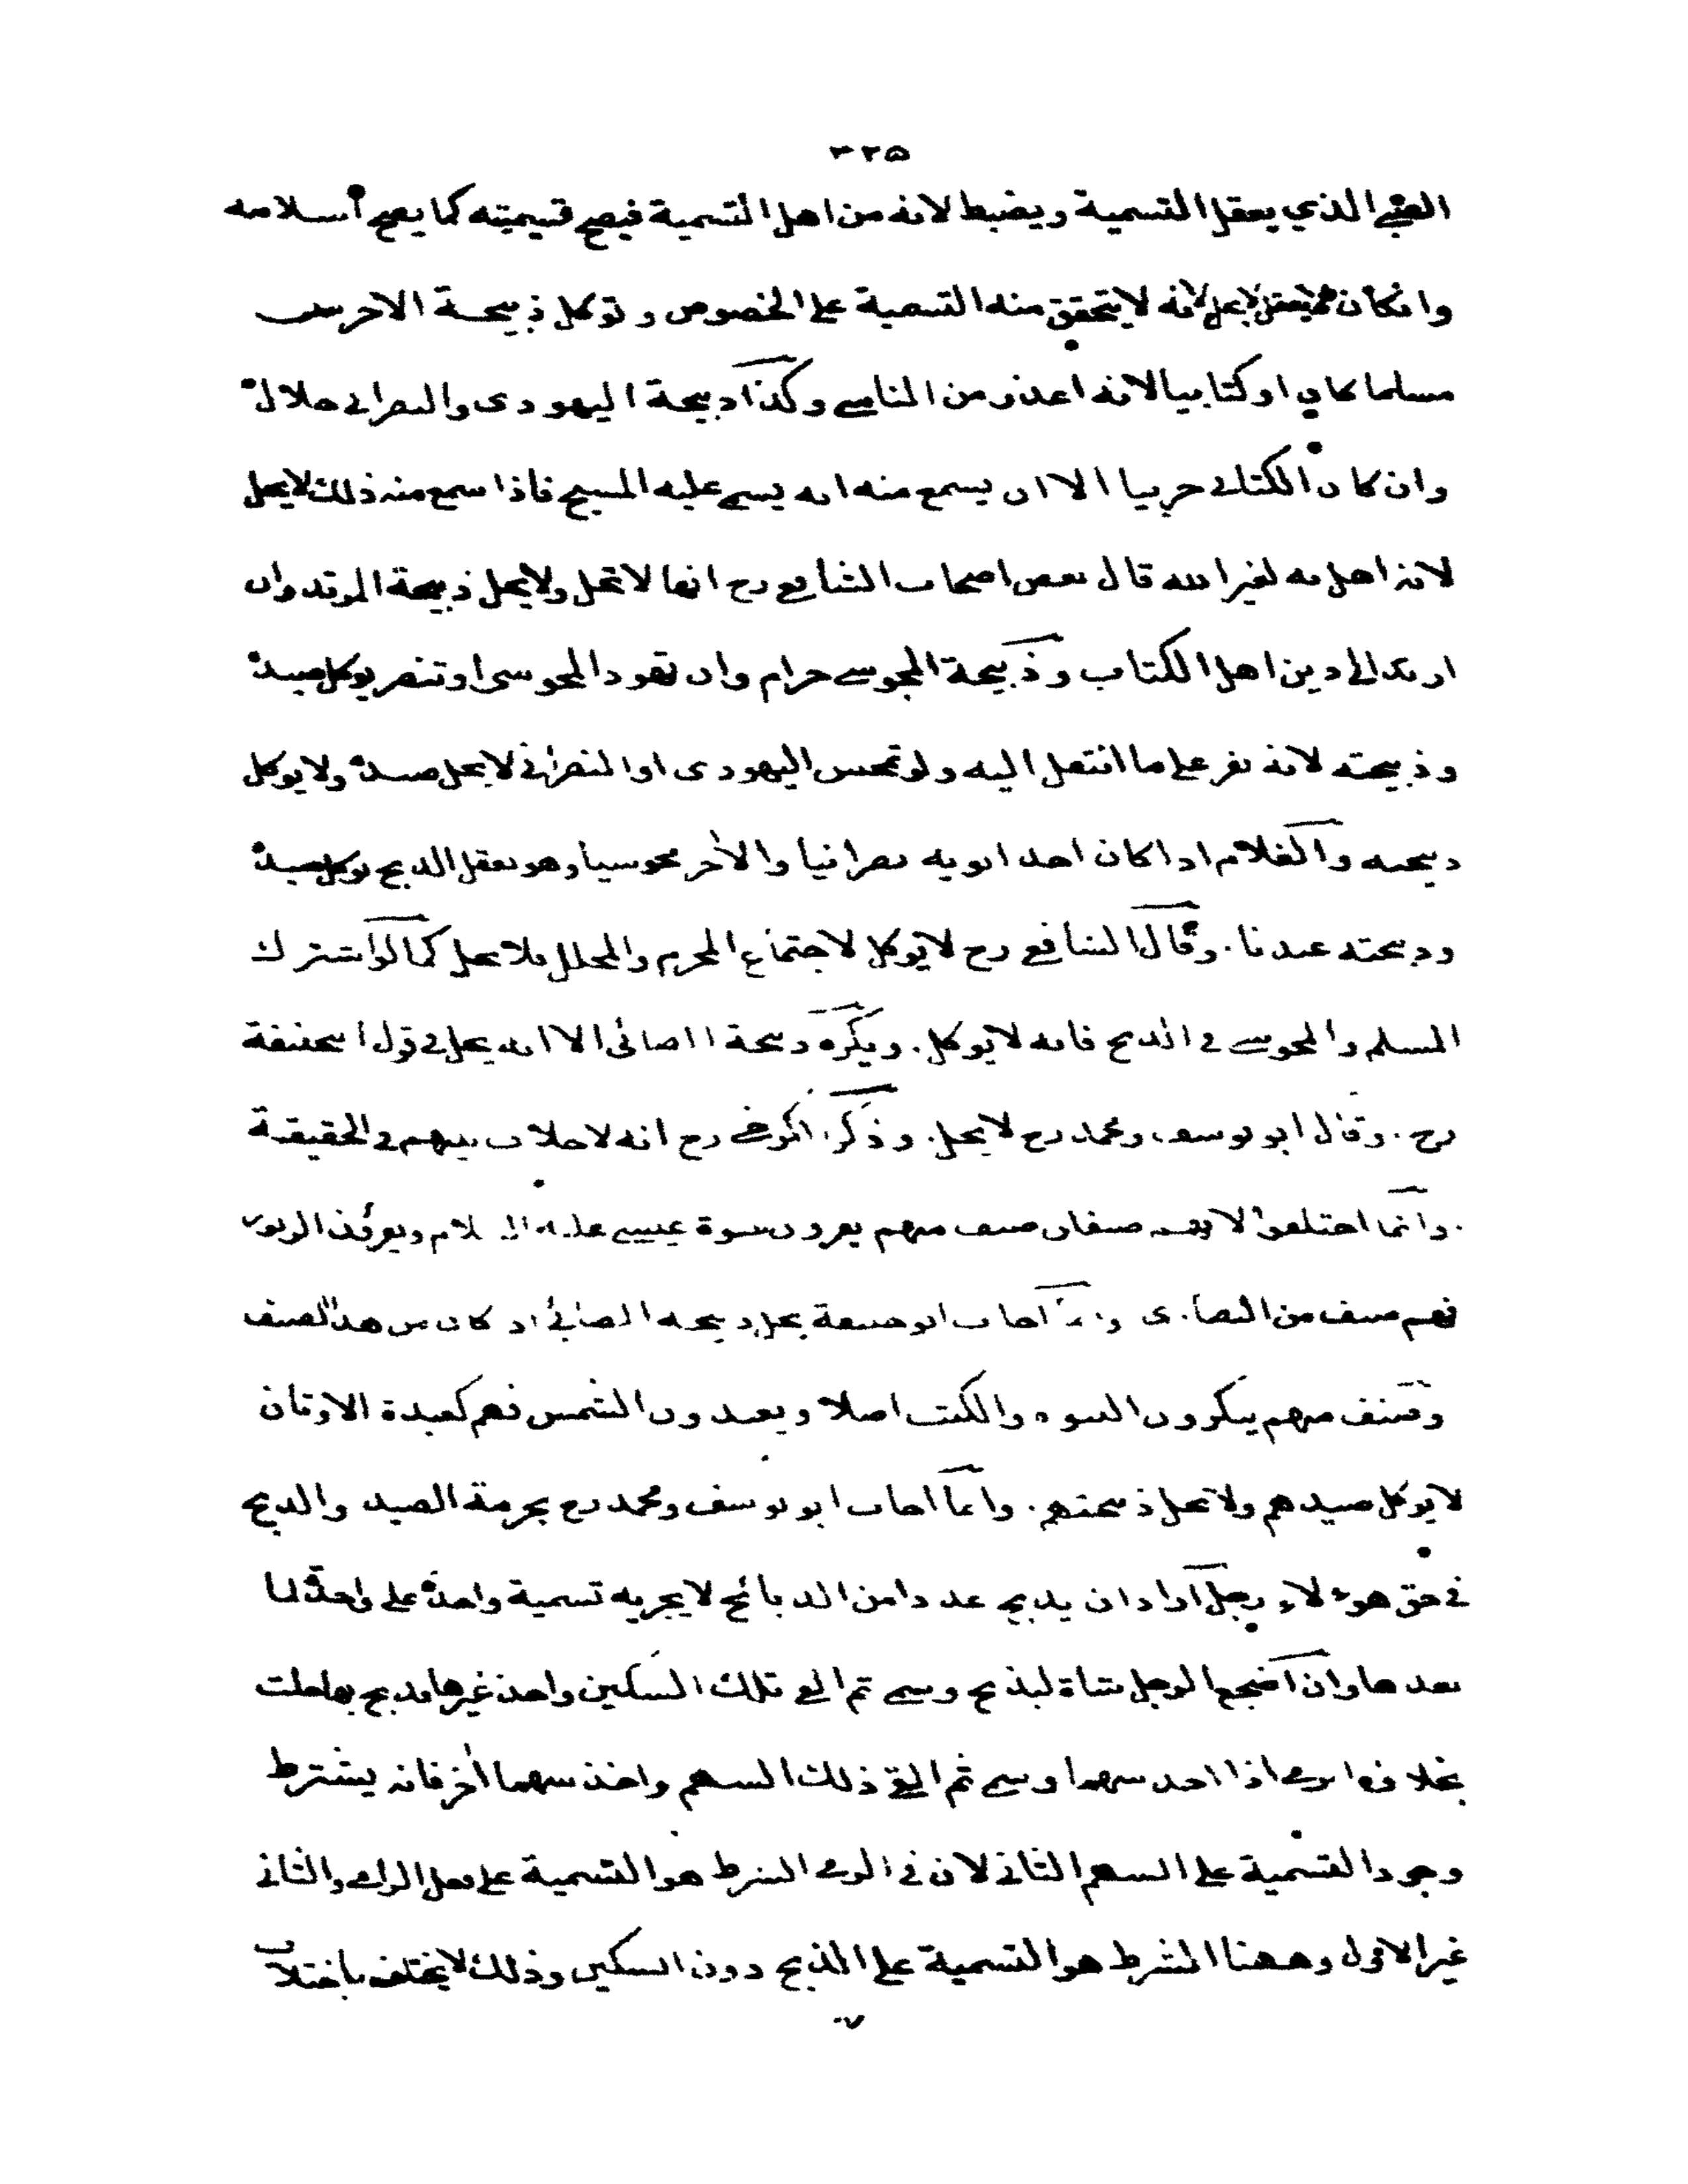 ٣٢٥
الصبي الذي يعقل التسمية ويضبط لانه من اهل التسمية فيصح تسميته كما يصح اسلامه
وانكان ممن لا يعقل لا يحل لانه لا يتحقق منه التسمية على الخصوص وتوكل ذبيحة الاخرس
مسلما كان او كتابيا لانه اعذر من الناسي وكذا ذبيحة اليهودى والنصراني حلال
وان كان الكتابي حربيا الا ان يسمع منه انه يسمي عليه المسيح فاذا سمع منه ذلك لا يحل
لانه اهل به لغير الله قال بعض اصحاب الشافعي رح انها لا تحل ولا يحل ذبيحة المرتد وان
ارتد الى دين اهل الكتاب وذبيحة المجوسي حرام وان تهود المجوسى او تنصر يوكل صيده
وذبيحته لانه يقر على ما انتقل اليه ولو تمجس اليهودى او النصراني لا يحل صيده ولا يوكل
ذبيحته والغلام اذا كان احد ابويه نصرانيا والاخر مجوسيا وهو يعقل الذبح توكل صيده
وذبيحته عندنا. وقال الشافعي رح لا يوكل لاجتماع المحرم والمحلل فلا يحل كما لو اشترك
المسلم والمجوسي في الذبح فانه لا يوكل. ويكره ذبيحة الصائى الا انه يحل في قول ابيحنيفة
رح. وقال ابو يوسف ومحمد رح لا يحل. وذكر الكرخي رح انه لا خلاف بينهم في الحقيقة
وانما اختلفوا لانهم صنفان صنف منهم يقرون بنبوة عيسى عليه السلام ويقرؤن الزبور
فهم صنف من النصارى وانما اجاب ابو حنيفة بحل ذبيحة الصابئ اذ كان من هذا الصنف
وصنف منهم ينكرون النبوة والكتب اصلا ويعبدون الشمس فهم كعبدة الاوثان
لا يوكل صيدهم ولا يحل ذبيحتهم. وانما اجاب ابو يوسف ومحمد رح بحرمة الصيد والذبح
في حق هوءلاء رجل اراد ان يذبح عددا من الذبائح لا يجزيه تسمية واحدة على واحدة لما
بعدها وان اضجع الرجل شاة ليذبح وسمى ثم القى تلك السكين واخذ غيرها فذبح بها حلت
بخلاف الرمى اذا اخذ سهما وسمى ثم القى ذلك السهم واخذ سهما اخر فانه يشترط
وجود التسمية على السهم الثاني لان في الرمي الشرط هو التسمية على فعل الرامي والثاني
غير الاول وههنا الشرط هو التسمية على الذبح دون السكين وذلك لا يختلف باختلاف